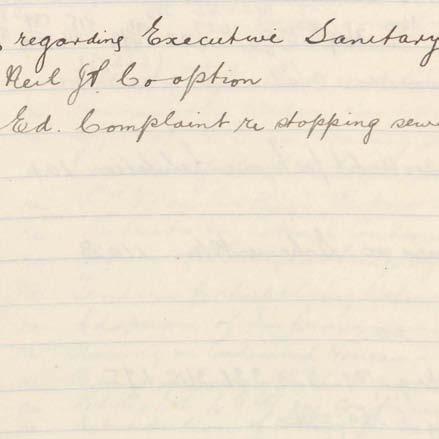 regarding Executive Sanitary
Neil Jt. Co option
Ed. Complaint re stopping sew